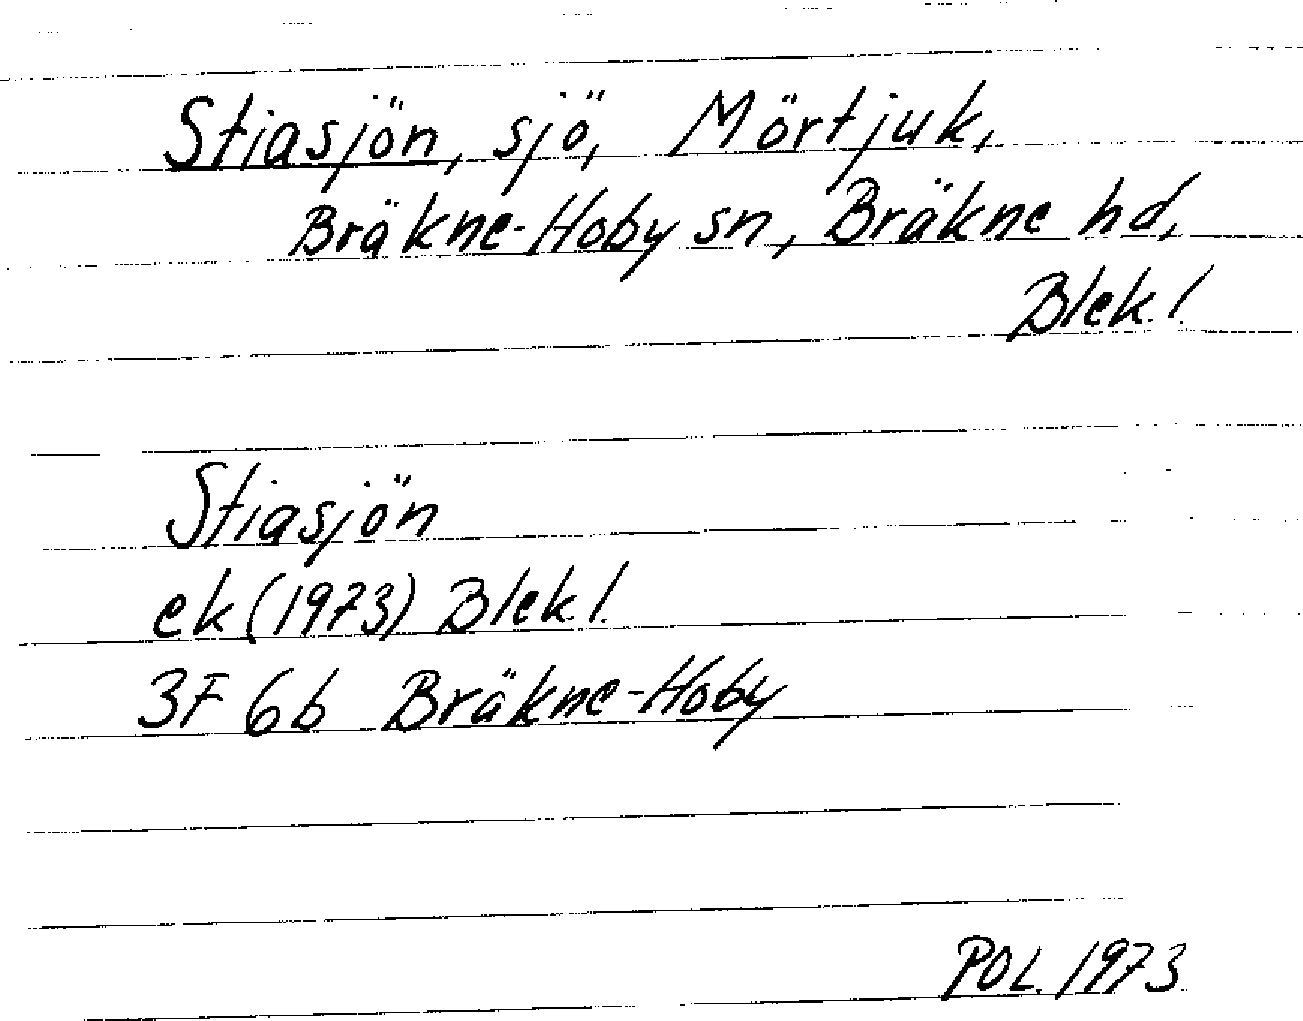 Stiasjön, sjö, Mörtjuk,
Bräkne-Hoby sn, Bräkne hd,
Blek.l.
Stiasjön
ek (1973) Blek.l.
3F 6b Bräkne-Hoby
POL 1973